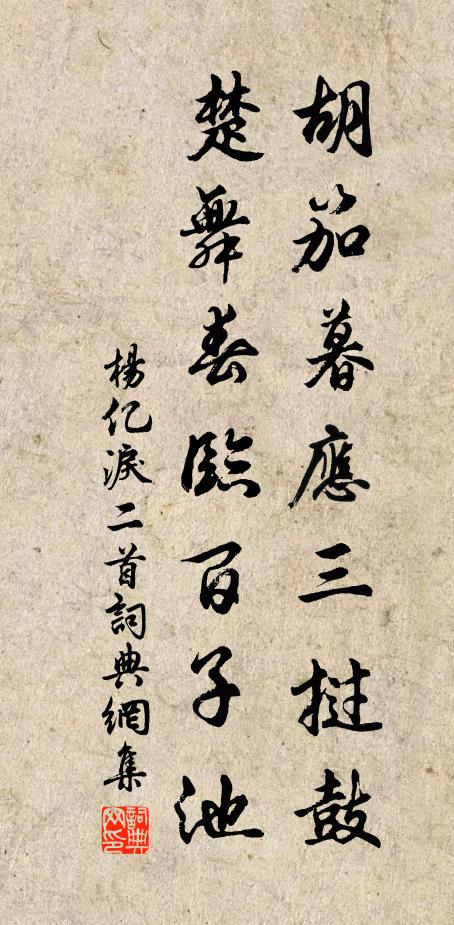 胡笳暮應三撾鼓
楚舞春臨百子池
楊億淚二首詞典網集
詞典網印